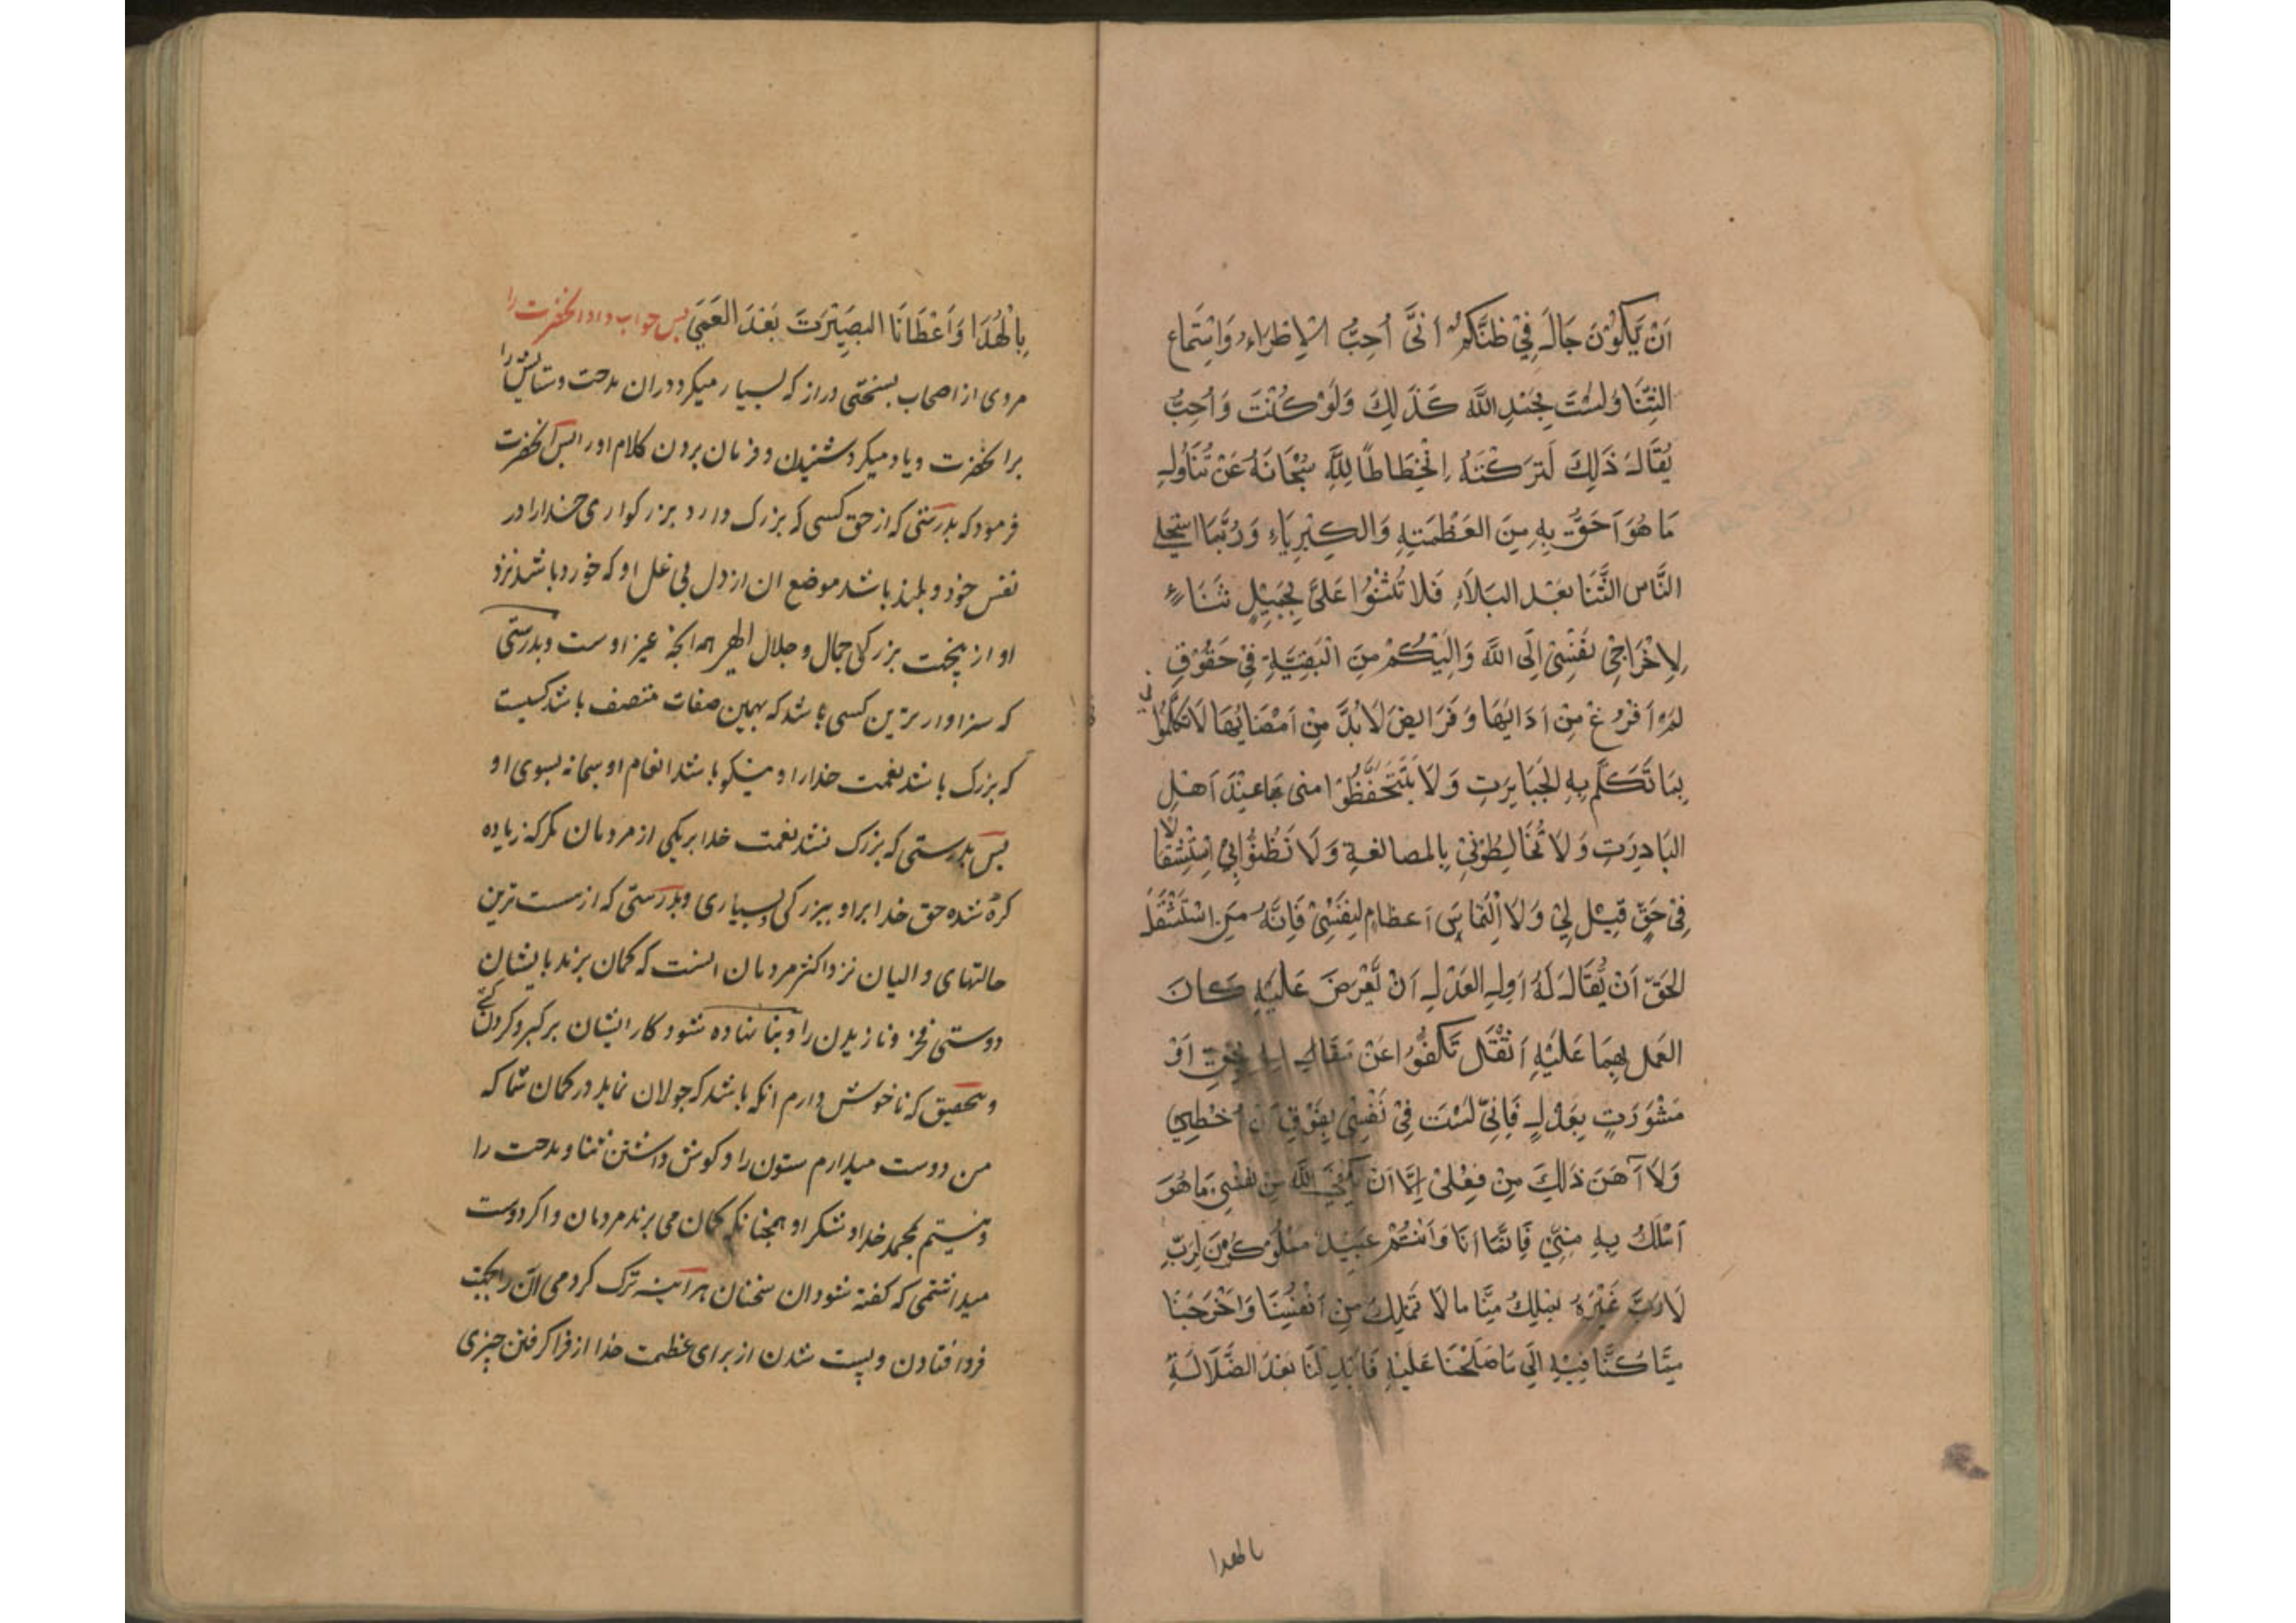 اَنْ يَكُوْنَ جَالَ فِيْ ظَنِّكُمْ اَنّى اُحِبُّ الْاِطْرَاءَ وَاسْتِمَاع
الثَّنَا وَلَسْتَ بِحَمْدِ اللّٰه كَذَلِكَ وَلَوْ كُنْتَ وَاُحِبُّ
يُقَالَ ذَلِكَ لَتَرَكْتُهُ اِنْحِطَاطًا لِلّٰهِ سُبْحَانَهُ عَنْ تَنَاوُلِ
مَا هُوَ اَحَقُّ بِهِ مِنَ العَظْمَتِهِ وَالكِبْرِيَاءِ وَرُبَّمَا اسْتَحْلى
النَّاس الثَّنَا بَعْدَ البَلَاءِ فَلَا تُثْنُوْا عَلَىَّ بِجَمِيْلٍ ثَنَاءٍ
لِاِخْرَاجِيْ نَفْسِيْ اِلَى اللّٰه وَاِلَيْكُمْ مِنَ الْبَقِيَّةِ فِيْ حَقُوْقٍ
لَمْ اَفْرُغْ مِنْ اَدَائِهَا وَفَرَايضَ لَابُدَّ مِنْ اَمْضَائِهَا لَاتُكَلِّمُوْا نى
بِمَا تَكَلَّم بِهِ الجَبَابِرَتِ وَلَا تَتَحَفَّظُوْا منى بما عِنْدَ اَهْلِ
البَادِرَتِ وَلَا تُخَالِطُوْنِيْ بِالمصانعةِ وَلَا تَظُنُّوْا بِيْ اِسْتِثْقَالا
فِيْ حَقٍّ قِيْلَ لِيْ وَلَا الْتِمَاسَ اعظام لِنَفْسِيْ فَاِنَّهُ مَنِ اسْتَثْقَلَ
الحَقّ اَنْ يُقَالَ لَهُ اَوِ العَدْلِ اَنْ يُعْرَضَ عَلَيْهِ كَانَ
العَمل بِهِمَا عَلَيْهِ اَثْقَلَ تَكُفُّوْا عَنْ مقَالِ بِحَقٍّ اَوْ
مَشْوَرَتٍ بِعَدْلٍ فَاِنِّيْ لَسْتَ فِيْ نَفْسِيْ بِفَوْقِ اَنْ اُخْطِئ
وَلَا آمَنَ ذَلِكَ مِنْ فِعْلِيْ اِلَّا اَنْ يَكْفِيَ اللّٰه مِنْ نَفْسِيْ مَا هُوَ
اَمْلَكُ بِهِ مِنِّيْ فَاِنَّمَا اَنَا وَاَنْتُمْ عَبِيْدٌ مَمْلُوْكُوْنَ لِرَبٍّ
لَارَبَّ غَيْرَهُ يَمْلِكُ مِنَّا مالَا نَمْلِكُ مِنْ اَنْفُسِنَا وَاَخْرَجَنَا
مِمَّا كُنَّا فِيْهِ اِلَى مَاصَلَحْنَا عَلَيْهِ فَابْدِلَنَا بَعْدَ الضَّلَالَةِ
بالهدا
بِالْهُدَا وَاَعْطَانَا البَصِيْرَتَ بَعْدَ العَمَى پس جواب داد انحضرت را
مردى از اصحاب بسخنى دراز كه بسيار ميكرد دران مدحت وستايش را
بر انحضرت وياد ميكرد شنيدن وفرمان بردن كلام اورا پس انحضرت
فرمود كه بدرستى كه از حق كسى كه بزرك دارد بزركوارى خدا را در
نفس خود وبلند باشد موضع ان از دل بى غل او كه خورد باشد نزد
او از بجهت بزركى جمال وجلال الهى هر انچه غير اوست وبدرستى
كه سزاوارترين كسى باشد كه بهمين صفات متصف باشد كسيت
كه بزرك باشد نعمت خدا را او نيكو باشد انعام او سبحانه بسوى او
پس بدرستى كه بزرك نشد نعمت خدا بر يكى از مردمان مكر كه زياده
كرده شده حق خدا بر او ببزركى وبسيارى وبدرستى كه از سست ترين
حالتهاى واليان نزد اكثر مردمان انست كه كمان برند بايشان
دوستى فخر ونازيدن را وبنا نهاده شود كار ايشان بر كبر وكردن كشى
وبتحقيق كه ناخوش دارم انكه باشد كه جولان نمايد در كمان شما كه
من دوست ميدارم ستودن را وكوش داشتن ثنا ومدحت را
ونيستم بحمد خدا وشكر او همچنانكه كمان مى برند مردمان واكر دوست
ميداشتمى كه كفته شود ان سخنان هراينه ترك كردمى ان را بجهت
فرود افتادن وپست شدن از براى عظمت خدا از فرا كرفتن چيزى